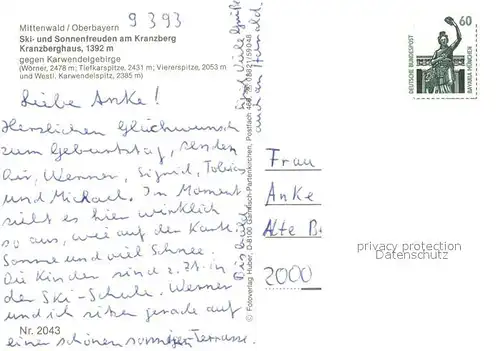 9 393
Mittenwald / Oberbayern
Ski- und Sonnenfreuden am Kranzberg
Kranzberghaus, 1392 m
gegen Karwendelgebirge
(Wörner, 2478 m; Tiefkarspitze, 2431 m; Viererspitze, 2053 m
und Westl. Karwendelspitze, 2385 m)
Liebe Anke!
Herzlichen Glückwunsch
zum Geburtstag, senden
Dir, Werner, Sigrid, Tobias
und Michael. Im Moment
sieht es hier wirklich
so aus, wie auf der Karte.
Sonne und viel Schnee.
Die Kinder sind z. Zt. in
der Ski-Schule. Werner
und ich sitzen gerade auf
einer schönen sonnigen Terrasse.
Nr. 2043
Bis bald und viele Grüße
auch an
© Fotoverlag Huber, D-8100 Garmisch-Partenkirchen, Postfach 466, ☎ 08821/59048
60
DEUTSCHE BUNDESPOST
BAVARIA MÜNCHEN
Frau
Anke
Alte B
2000
privacy protection
Datenschutz